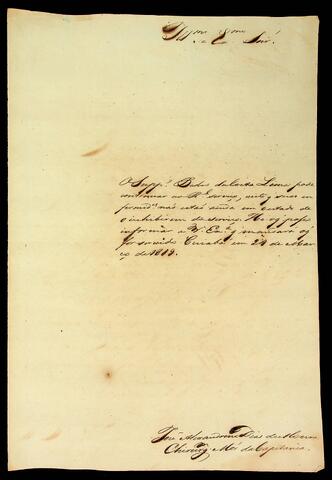 Illmo. e Exmo. Snr.
O Suppe. Pedro da Costa Leme pode
continuar no Rl. serviço, visto q̃ suas en
fermides. não estão ainda em estado de
o inhibirem do serviço. He o q̃ posso
informar a V. Exa. q̃ mandará o q̃
for servido Cuiabá em 24 de Mar
ço de 1819.
José Alexandrino Dias de
Chirurg. Mór da Capitania